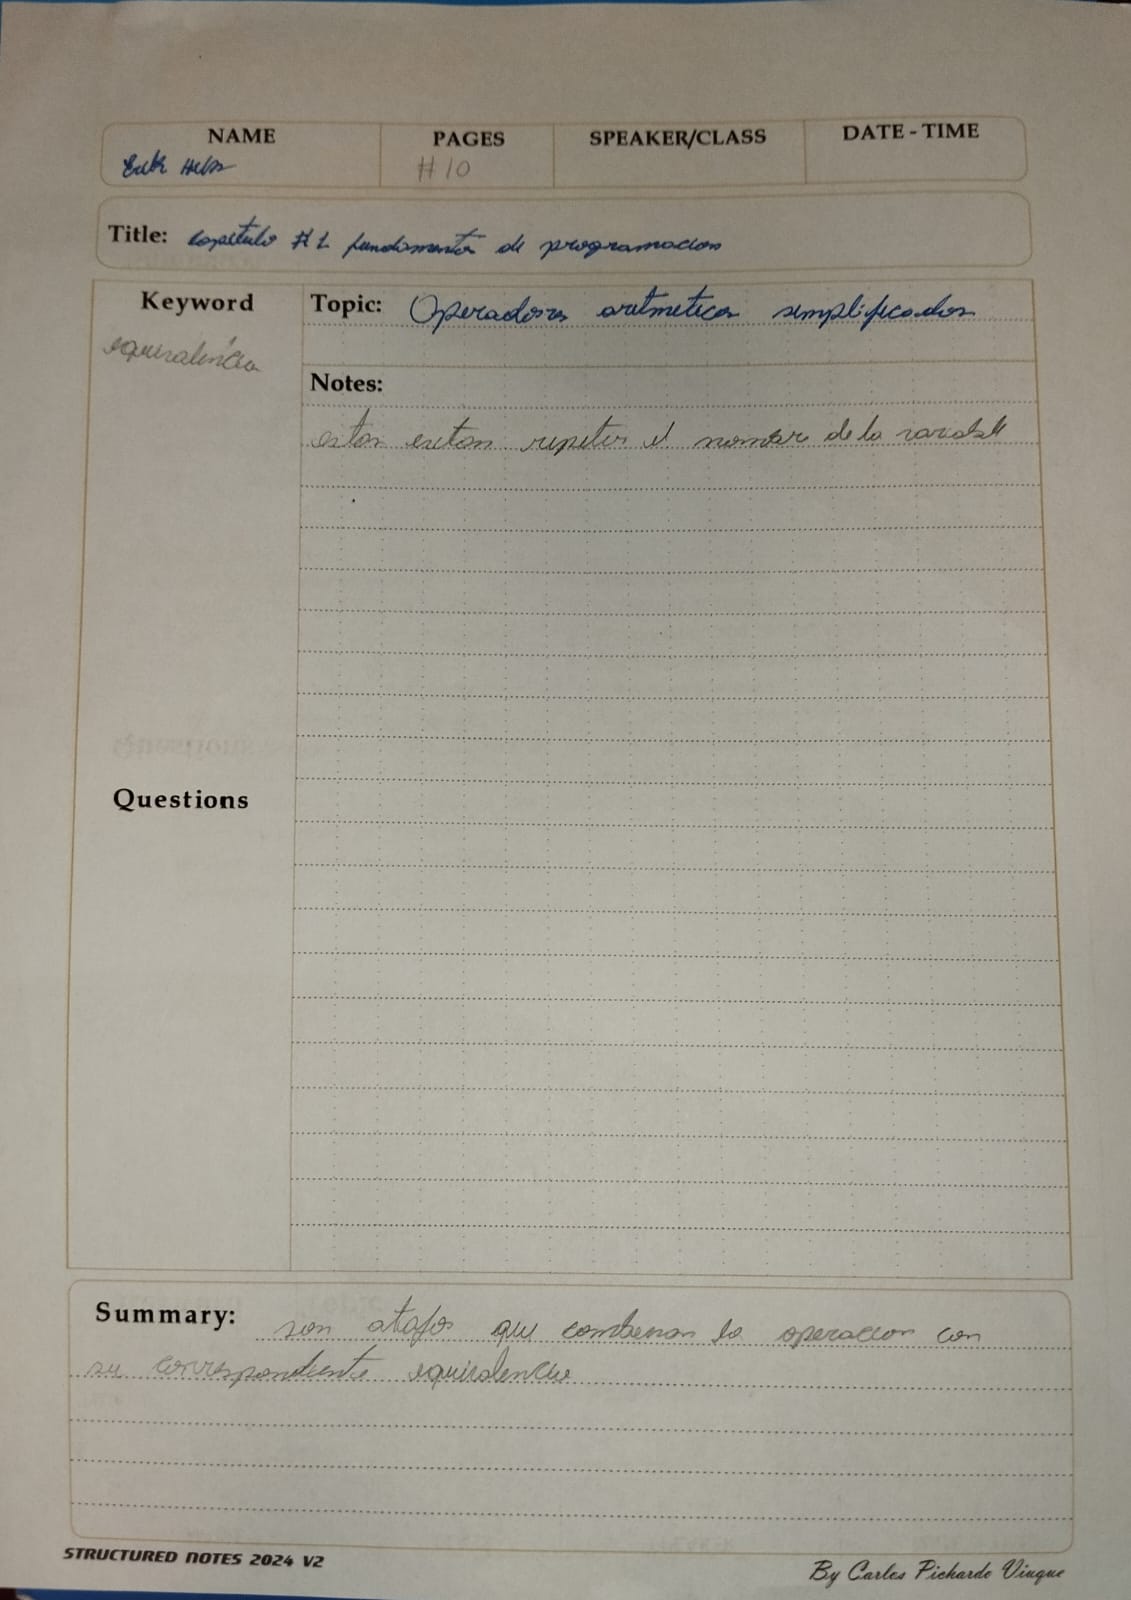 NAME PAGES SPEAKER/CLASS DATE - TIME
Erik #10
Title: capitulo #1 fundamentos de programacion
Keyword Topic: Operadores aritmeticos simplificados
equivalencia
Notes:
estos evitan repetir el nombre de la variable
Questions
Summary: son atajos que combinan la operacion con
su correspondiente equivalencia
STRUCTURED NOTES 2024 V2
By Carlos Pichardo Viuque